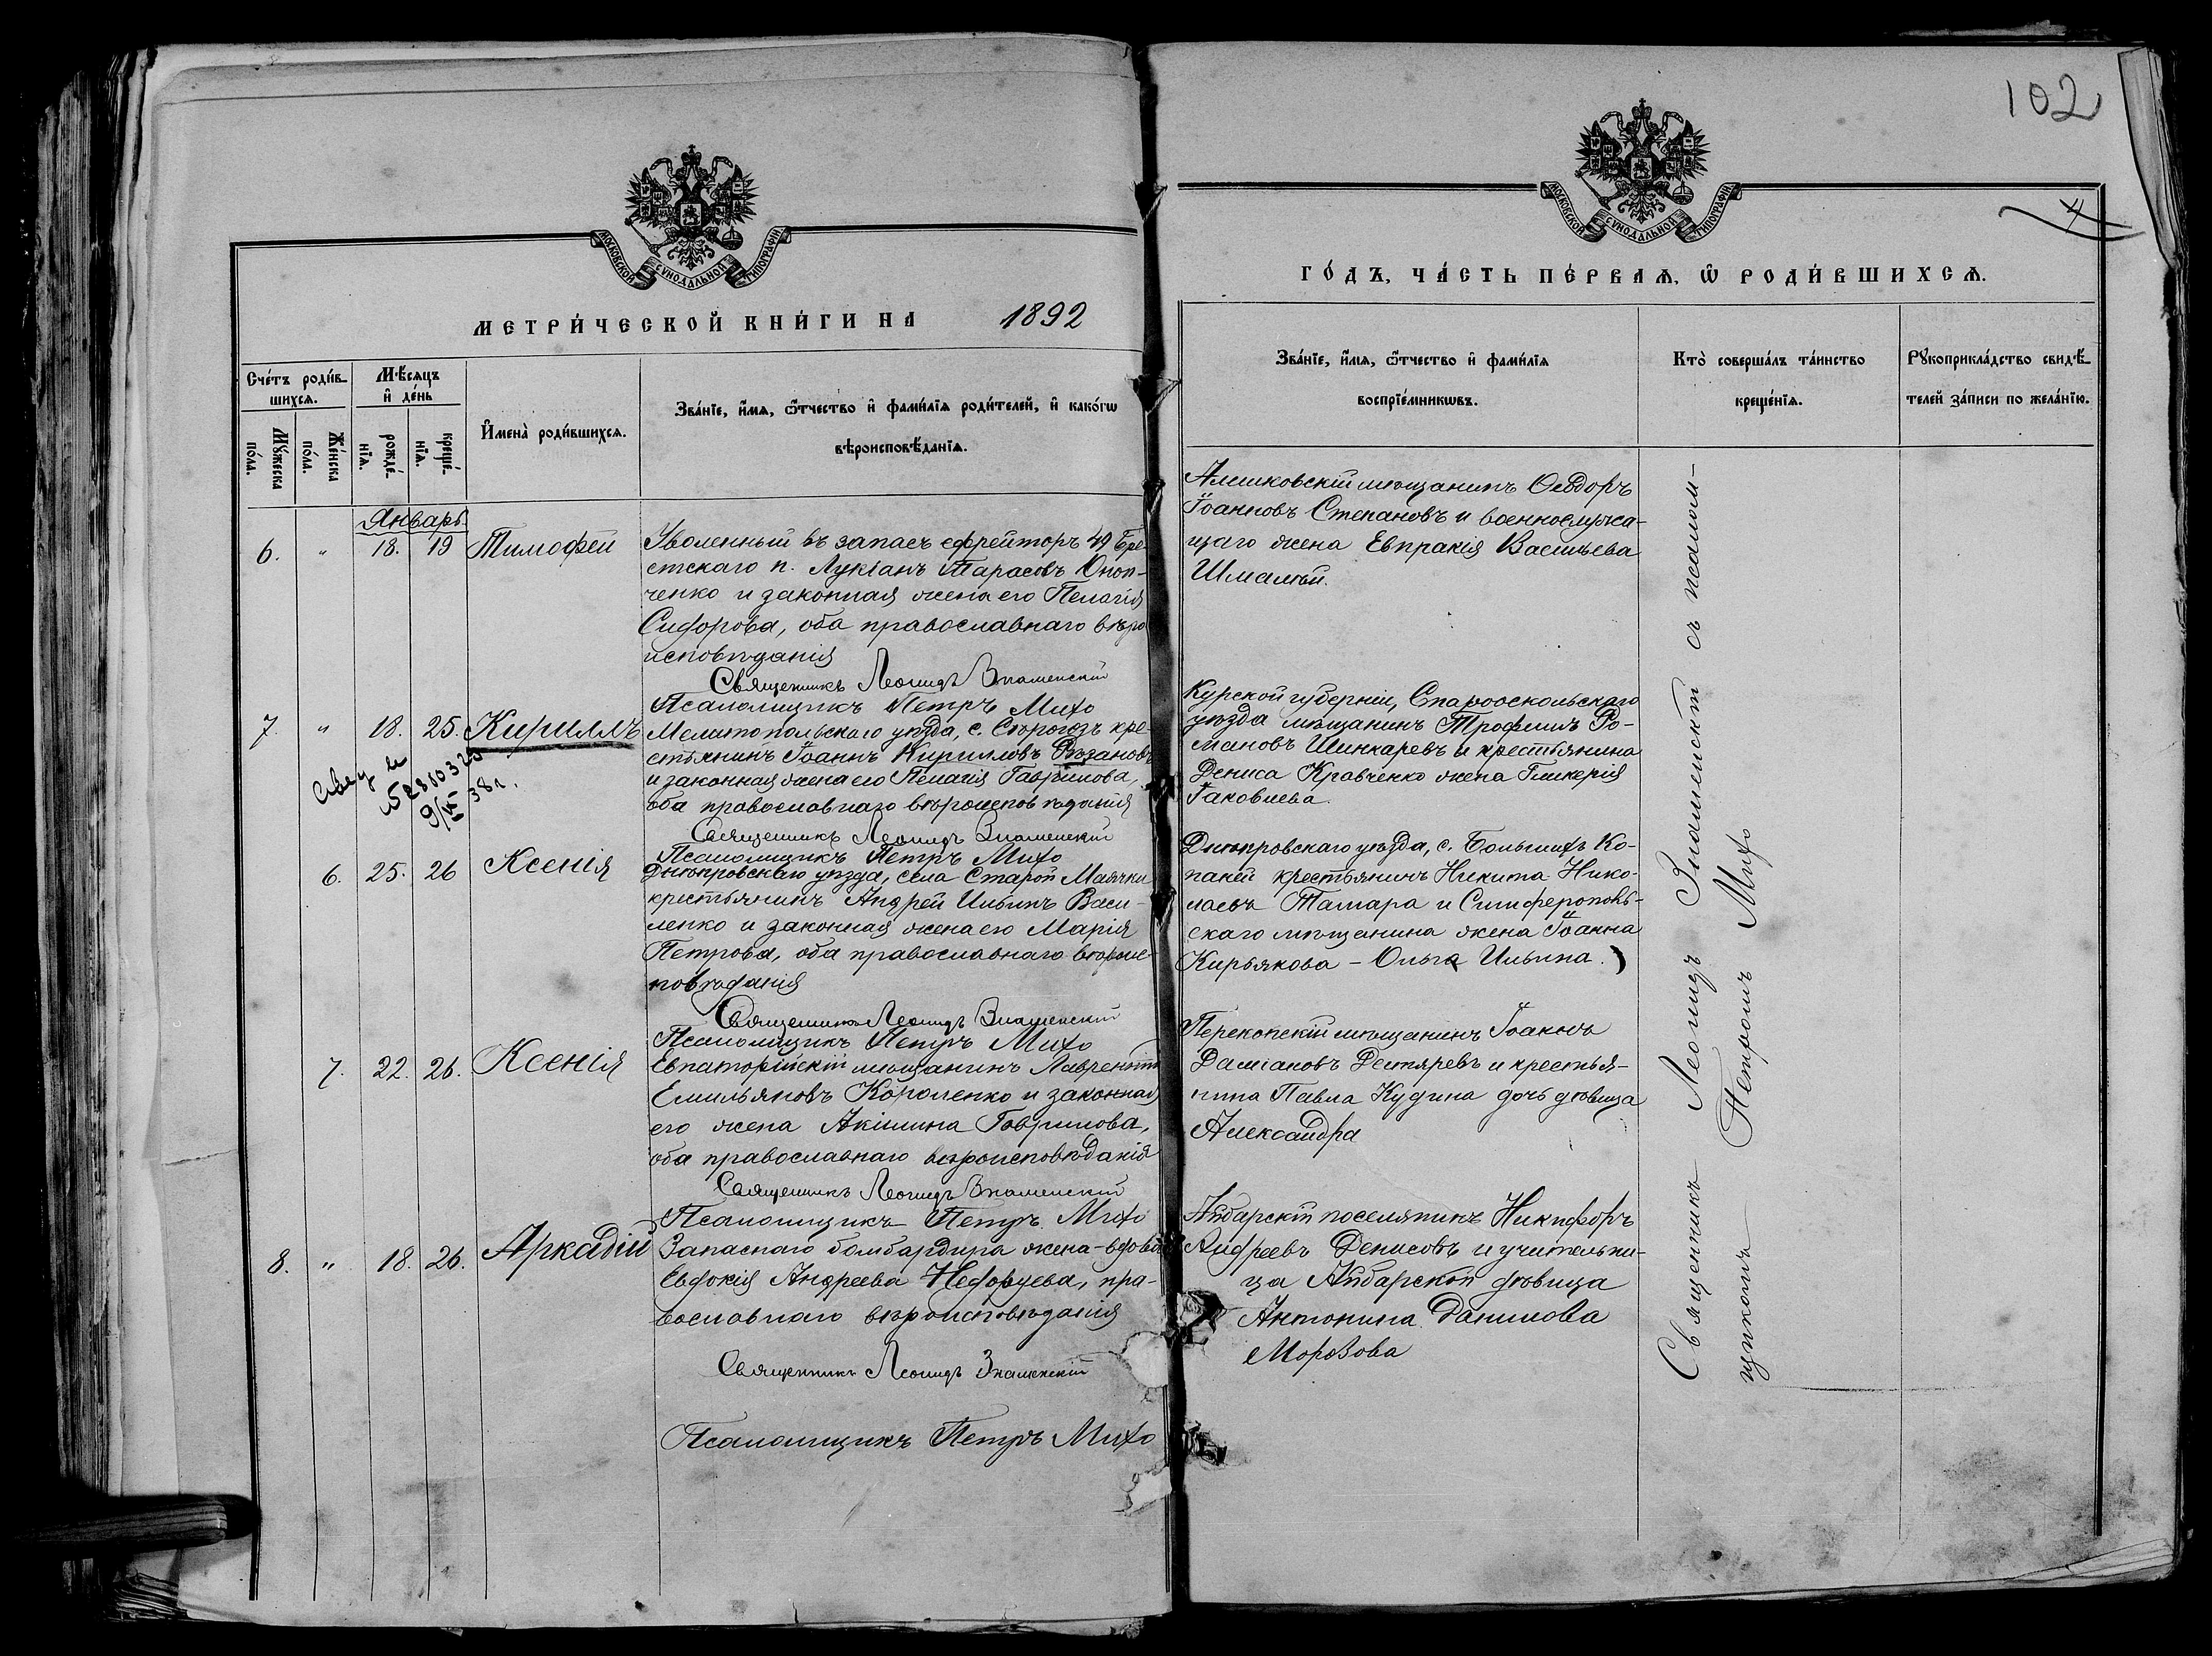 102
4
МОСКОВСКОЙ СУНОДАЛЬНОЙ ТИПОГРАФІИ
МОСКОВСКОЙ СУНОДАЛЬНОЙ ТИПОГРАФІИ
МЕТРИ́ЧЕСКОЙ КНИ́ГИ НА 1892
ГО́ДЪ, ЧА́СТЬ ПЕ́РВАѦ, Ѽ РОДИ́ВШИХСѦ.
Сче́тъ роди́в-
шихсѧ.
Мꙋ́жеска
по́ла.
Же́нска
по́ла.
Мѣ́сѧцъ
и҆ де́нь
рожде́-
нїѧ.
креще́-
нїѧ.
И҆мена̀ роди́вшихсѧ.
Зва́нїе, и҆́мѧ, ѻ҆́тчество и҆ фами́лїѧ роди́телей, и҆ како́гѡ
вѣроисповѣ́данїѧ.
Зва́нїе, и҆́мѧ, ѻ҆́тчество и҆ фами́лїѧ
воспрїе́мникѡвъ.
Кто̀ соверша́лъ та́инство
креще́нїѧ.
Рꙋкоприкла́дство свидѣ́-
телей за́писи по жела́нїю.
Январь
6. " 18. 19 Тимофей
Уволенный въ запасъ ефрейторъ 49 Бре-
стскаго п. Лукіанъ Тарасовъ Оноп-
ченко и законная жена его Пелагія
Сидорова, оба православнаго вѣро
исповѣданія
Священникъ Леонидъ Знаменскій
Псаломщикъ Петръ Михо
Алешковскій мѣщанинъ Ѳеодоръ
Іоанновъ Степановъ и военнослужа-
щаго жена Евпракія Васильева
Шмалъй.
7. " 18. 25. Кириллъ
Мелитопольскаго уѣзда, с. Сѣрогозъ кре-
стьянинъ Іоаннъ Кирилловъ Рѣзановъ
и законная жена его Пелагія Гаврилова,
оба православнаго вѣроисповѣданія
Священникъ Леонидъ Знаменскій
Псаломщикъ Петръ Михо
9/IX 38г.
Курской губерніи, Старооскольскаго
уѣзда мѣщанинъ Трофимъ Ро-
мановъ Шинкаревъ и крестьянина
Дениса Кравченко жена Гликерія
Іаковлева.
6. 25. 26 Ксенія
Днѣпровскаго уѣзда, села Старой Маячки
крестьянинъ Андрей Ильинъ Васи-
ленко и законная жена его Марія
Петрова, оба православнаго вѣроис-
повѣданія
Священникъ Леонидъ Знаменскій
Псаломщикъ Петръ Михо
Днѣпровскаго уѣзда, с. Большихъ Ко-
паней крестьянинъ Никита Нико-
лаевъ Тамара и Симферополь-
скаго мѣщанина жена Іоанна
Кирьякова - Ольга Ильина.
7. 22. 26. Ксенія
Евпаторійскій мѣщанинъ Лаврентій
Емильяновъ Короленко и законная
его жена Акилина Гаврилова,
оба православнаго вѣроисповѣданія
Священникъ Леонидъ Знаменскій
Псаломщикъ Петръ Михо
Перекопскій мѣщанинъ Іоаннъ
Даміановъ Дегтяревъ и крестья-
нина Павла Кудина дочь дѣвица
Александра
8. " 18. 26. Аркадій
Запаснаго бомбардира жена-вдова
Евдокія Андреева Нефодуева, пра-
вославнаго вѣроисповѣданія
Священникъ Леонидъ Знаменскій
Псаломщикъ Петръ Михо
Айбарскій поселянинъ Никифоръ
Андреевъ Денисовъ и учительни-
ца Айбарской дѣвица
Антонина Данилова
Морозова
Священникъ Леонидъ Знаменскій съ псалом-
щикомъ Петромъ Михо